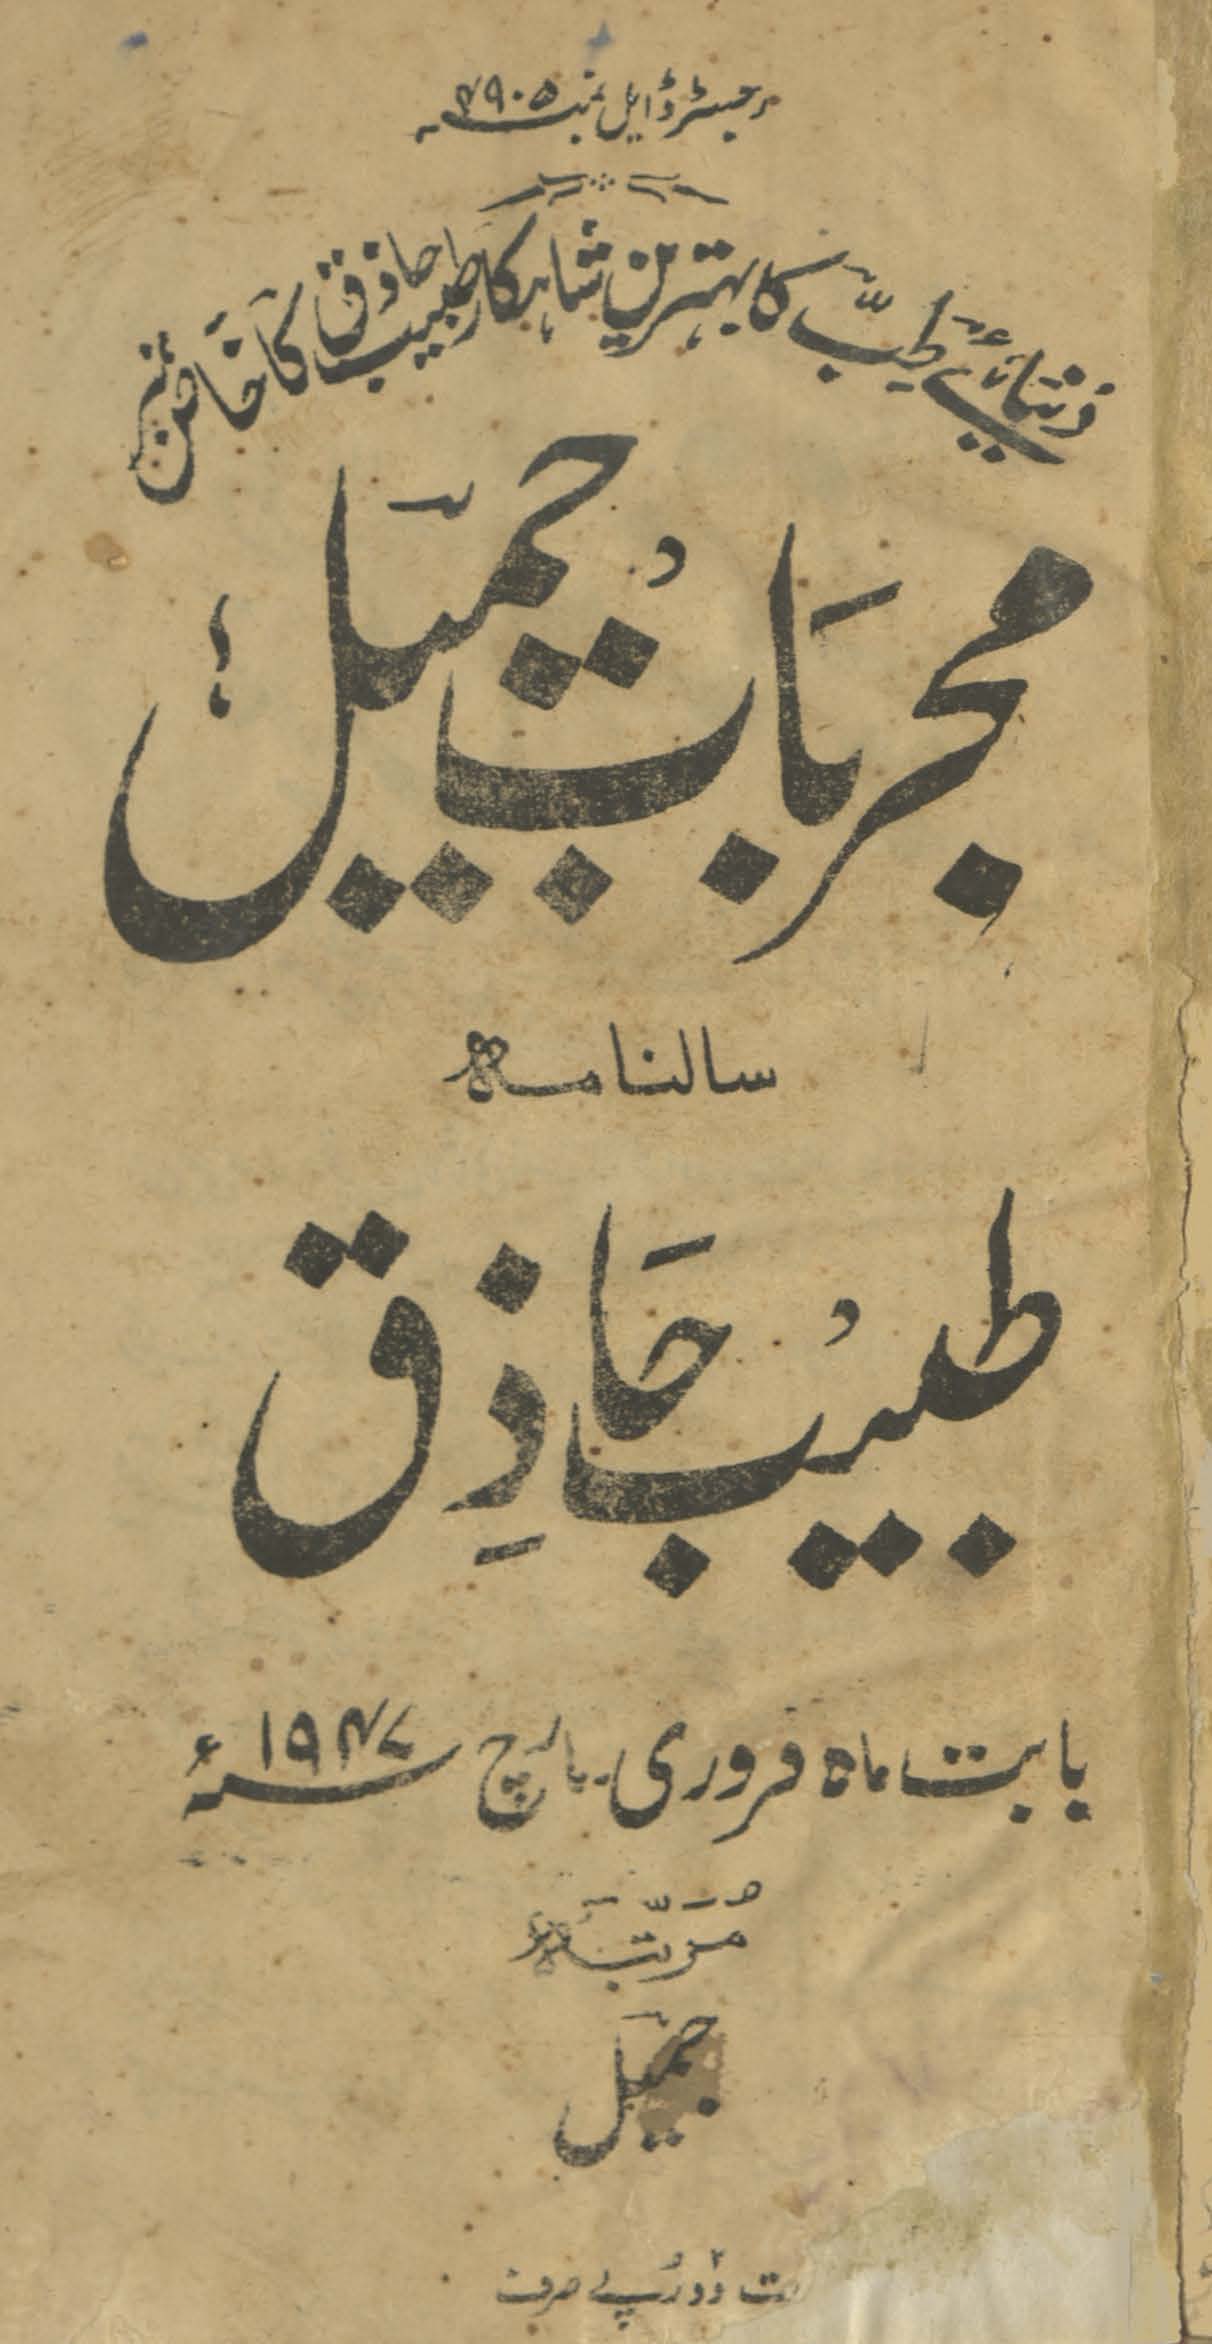 رجسٹرڈ ایل نمبر ۴۹۰۵
دُنیائے طِبّ کا بہترین شاہکار طبیب حاذق کا خاص نمبر
مجربات جمیل
سالنامہ
طبیب حاذِق
بابت ماہ فروری ۔ مارچ ۱۹۴۷ء
مُرتّبہ
جمیل
دو رُپے صرف